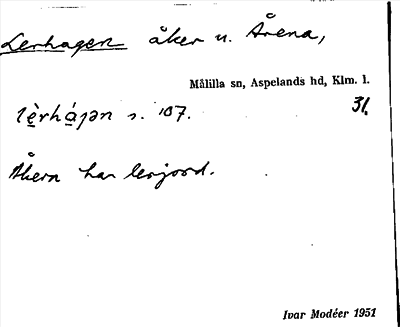 Lerhagen åker u. Årena,
Målilla sn, Aspelands hd, Klm. l.
lè̤rhá̤gən s. 107. 31.
Åkern har lerjord.
Ivar Modéer 1951